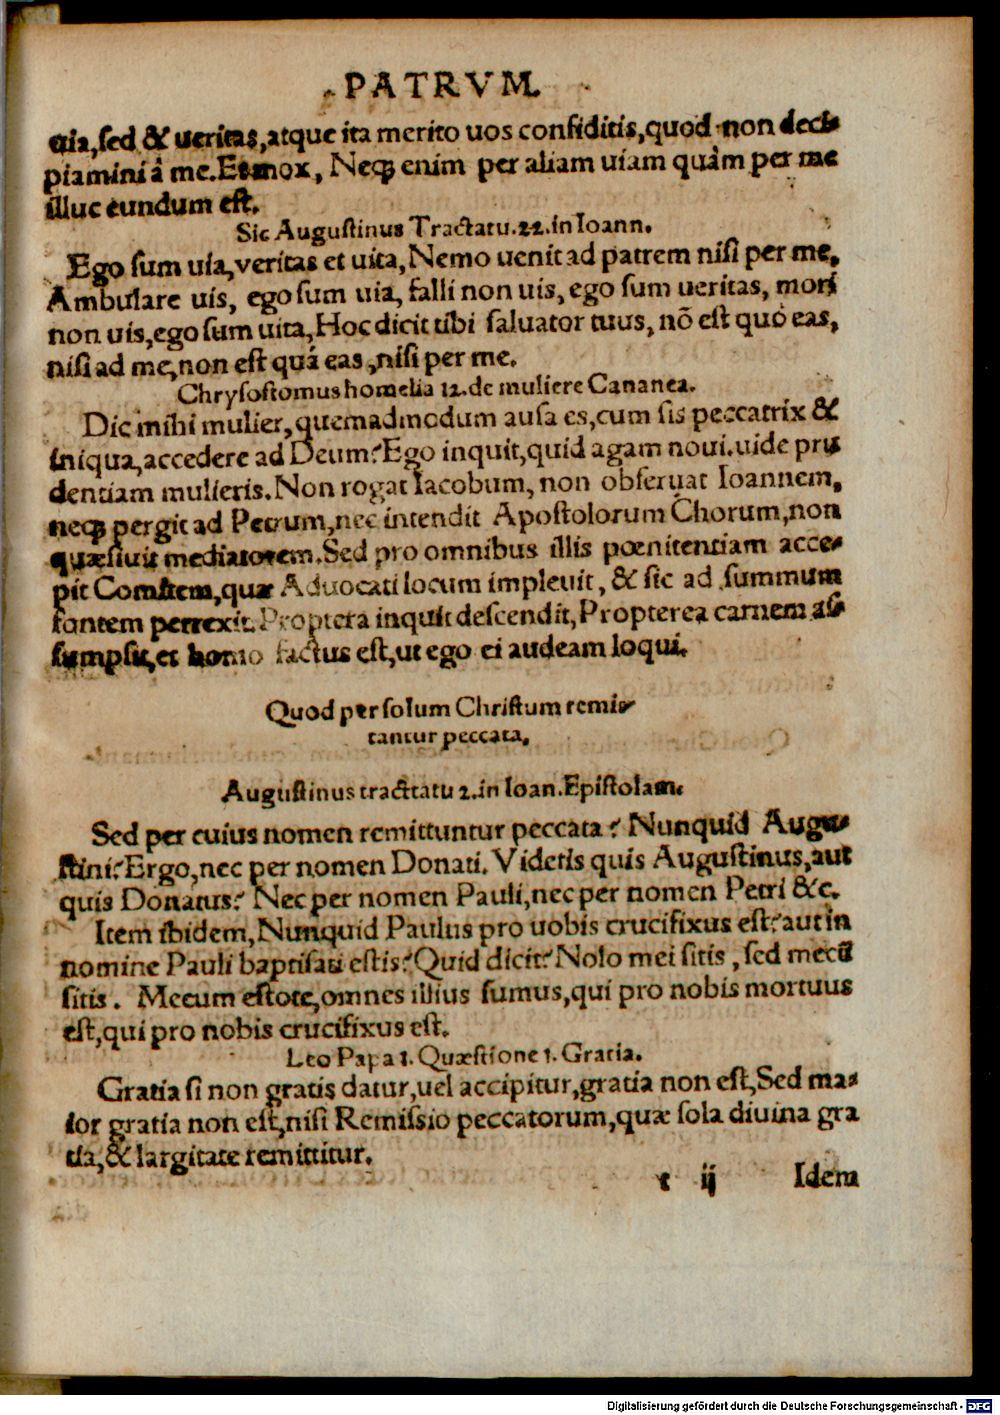 PATRVM.
uia, sed & ueritas, atque ita merito uos confiditis, quod non deci-
piamini â me. Et mox, Neqꝫ enim per aliam uiam quàm per me
illuc eundum est.
Sic Augustinus Tractatu. 22. in Ioann.
Ego sum uia, veritas et uita, Nemo uenit ad patrem nisi per me.
Ambulare uis, ego sum uia, falli non uis, ego sum ueritas, mori
non uis, ego sum uita, Hoc dicit tibi saluator tuus, nõ est quò eas,
nisi ad me, non est quá eas, nisi per me.
Chrysostomus homelia 12. de muliere Cananea.
Dic mihi mulier, quemadmodum ausa es, cum sis peccatrix &
iniqua, accedere ad Deum? Ego inquit, quid agam noui. uide pru
dentiam mulieris. Non rogat Iacobum, non obseruat Ioannem,
neqꝫ pergit ad Petrum, nec intendit Apostolorum Chorum, non
quæsiuit mediatorem. Sed pro omnibus illis pœnitentiam acce-
pit Comitem, quæ Aduocati locum impleuit, & sic ad summum
fontem perrexit. Proptera inquit descendit, Propterea carnem as-
sumpsit, et homo factus est, ut ego ei audeam loqui.
Quod per solum Christum remit-
tantur peccata.
Augustinus tractatu 2. in Ioan. Epistolam.
Sed per cuius nomen remittuntur peccata? Nunquid Augu-
stini? Ergo, nec per nomen Donati. Videtis quis Augustinus, aut
quis Donatus? Nec per nomen Pauli, nec per nomen Petri &c.
Item ibidem, Nunquid Paulus pro uobis crucifixus est? aut in
nomine Pauli baptisati estis? Quid dicit? Nolo mei sitis, sed mecũ
sitis. Mecum estote, omnes illius sumus, qui pro nobis mortuus
est, qui pro nobis crucifixus est.
Leo Papa 1. Quæstione 1. Gratia.
Gratia si non gratis datur, uel accipitur, gratia non est, Sed ma-
ior gratia non est, nisi Remissio peccatorum, quæ sola diuina gra
tia, & largitate remittitur.
c ij Idem
Digitalisierung gefördert durch die Deutsche Forschungsgemeinschaft - DFG